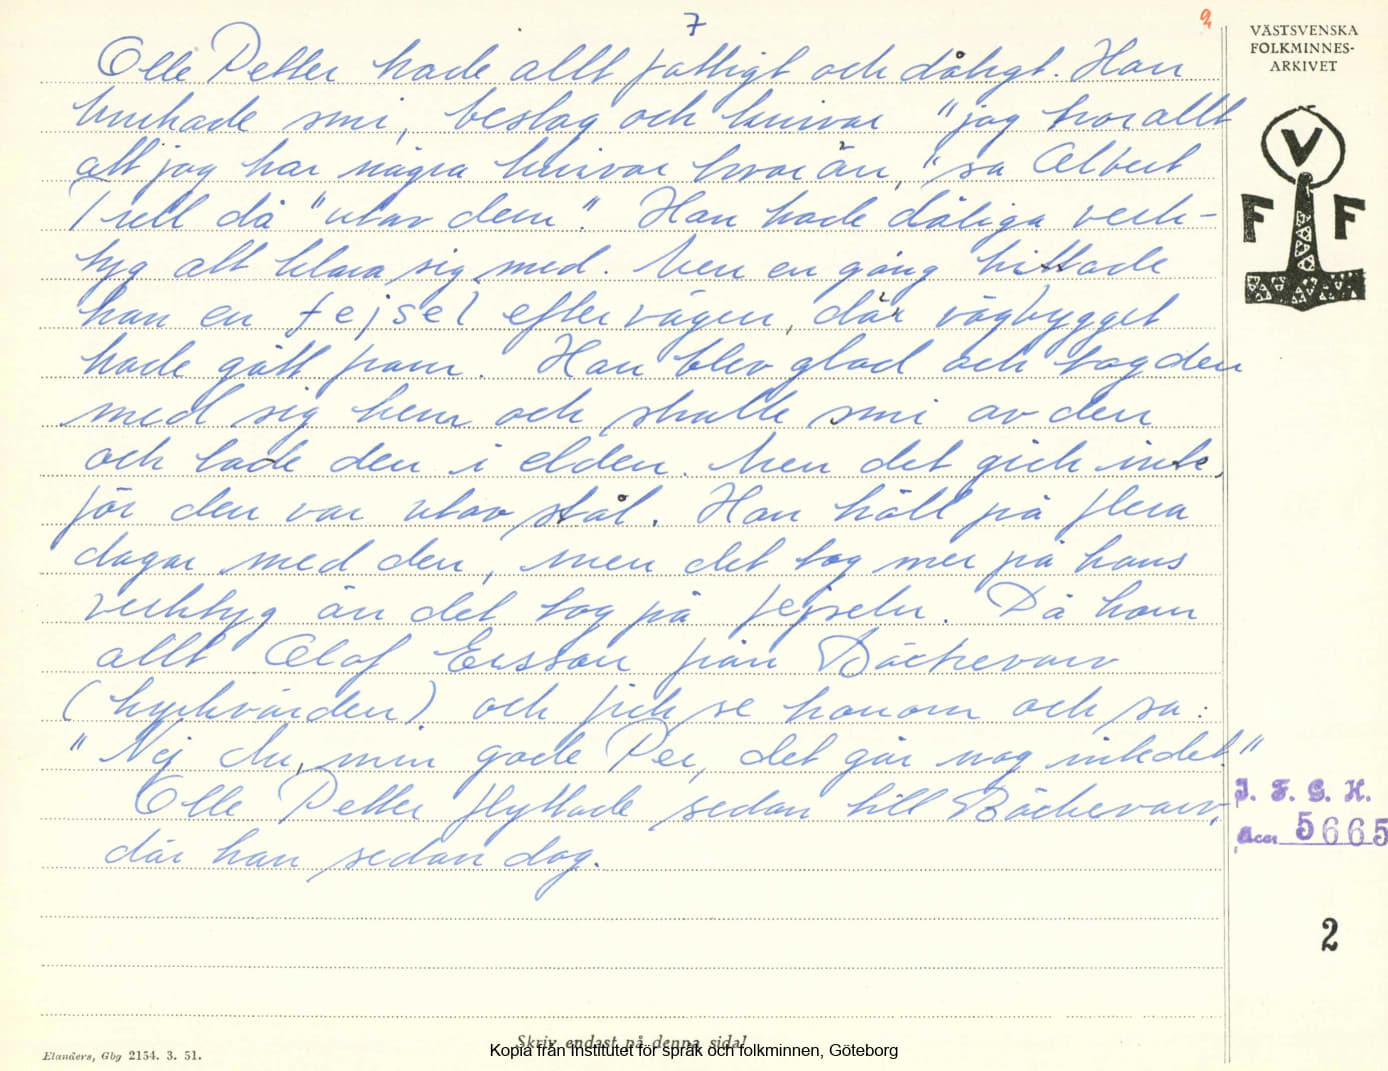 7
2
VÄSTSVENSKA
FOLKMINNES-
ARKIVET
V
F F
Olle Petter hade allt fattigt och dåligt. Han
brukade smi, beslag och knivar "jag tror allt
att jag har några knivar kvar än," sa Albert
Trell då "utav dem". Han hade dåliga verk-
tyg att klara sig med. Men en gång hittade
han en fejsel efter vägen, där vägbygget
hade gått fram. Han blev glad och tog den
med sig hem och skulle smi av den
och lade den i elden. Men det gick inte,
för den var utav stål. Han höll på flera
dagar med den, men det tog mer på hans
verktyg än det tog på fejseln. Då kom
allt Olof Ersson från Bäckevarv
(kyrkvärden) och fick se honom och sa:
"Nej du, min gode Per, det går nog inte det."
Olle Petter flyttade sedan till Bäckevarv,
där han sedan dog.
I. F. G. H.
Acc. 5665
2
Skriv endast på denna sida!
Elanders, Gbg 2154. 3. 51.
Kopia från Institutet för språk och folkminnen, Göteborg